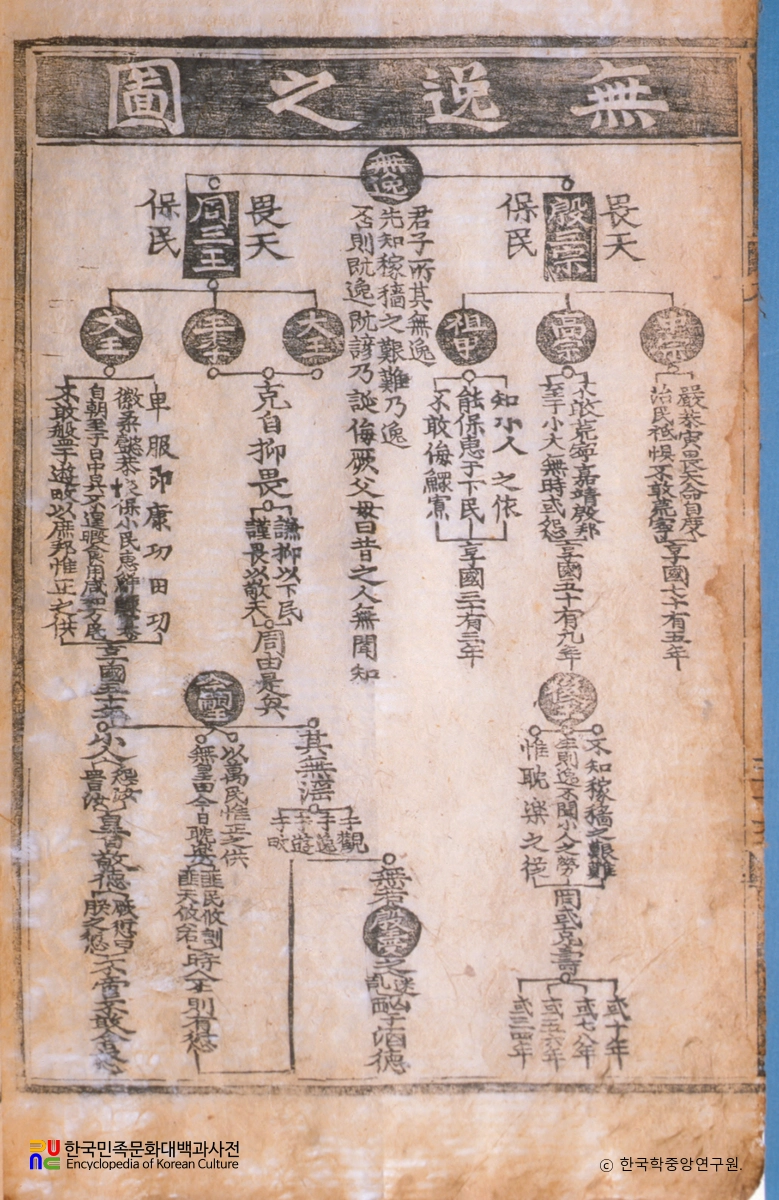 無逸之圖
無逸
君子所其無逸
先知稼穡之艱難乃逸
否則旣逸旣諺乃誕侮厥父母曰昔之人無聞知
畏天
殷三宗
保民
中宗
嚴恭寅畏天命自度
治民祗懼不敢荒寧
享國七十有五年
高宗
不敢荒寧嘉靖殷邦
至于小大無時或怨
享國五十有九年
祖甲
知小人之依
能保惠于下民
不敢侮鰥寡
享國三十有三年
不知稼穡之艱難
生則逸不聞小人之勞
惟耽樂之從
罔或克壽
或十年
或七八年
或五六年
或三四年
畏天
周三王
保民
大王
王季
文王
克自抑畏
謙抑以下民
謹畏以敬天
周由是興
卑服即康功田功
徽柔懿恭懷保小民惠鮮鰥寡
自朝至于日中昃不遑暇食用咸和萬民
不敢盤于遊畋以庶邦惟正之供
享國五十年
今嗣王
其無淫
于觀
于逸
于遊
于畋
無若殷受之迷亂酗于酒德
以萬民惟正之供
無皇曰今日耽樂
匪民攸訓
匪天攸若
時人丕則有愆
小人怨汝
詈汝
皇自敬德
厥愆曰
朕之愆
不啻不敢含怒
한국민족문화대백과사전
Encyclopedia of Korean Culture
ⓒ 한국학중앙연구원.